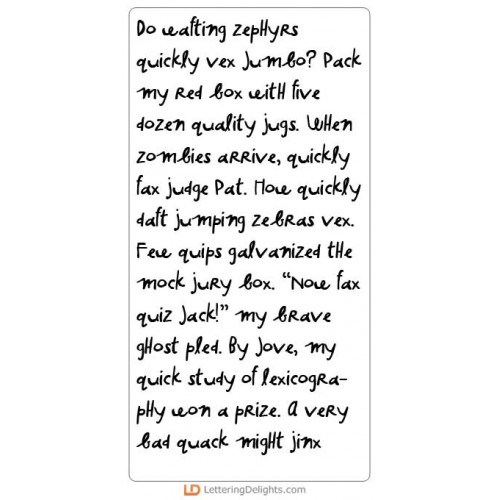 Do wafting zephyrs
quickly vex Jumbo? Pack
my red box with five
dozen quality jugs. When
zombies arrive, quickly
fax judge Pat. How quickly
daft jumping zebras vex.
Few quips galvanized the
mock jury box. “Now fax
quiz Jack!” my brave
ghost pled. By Jove, my
quick study of lexicogra-
phy won a prize. A very
bad quack might jinx
LD LetteringDelights.com